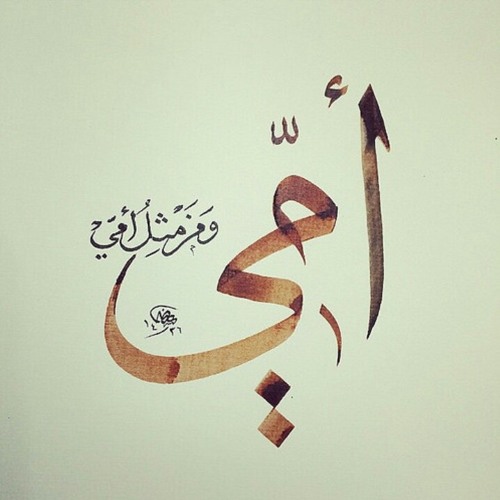 أمّي
وَمَن مِثلُ أُمّي